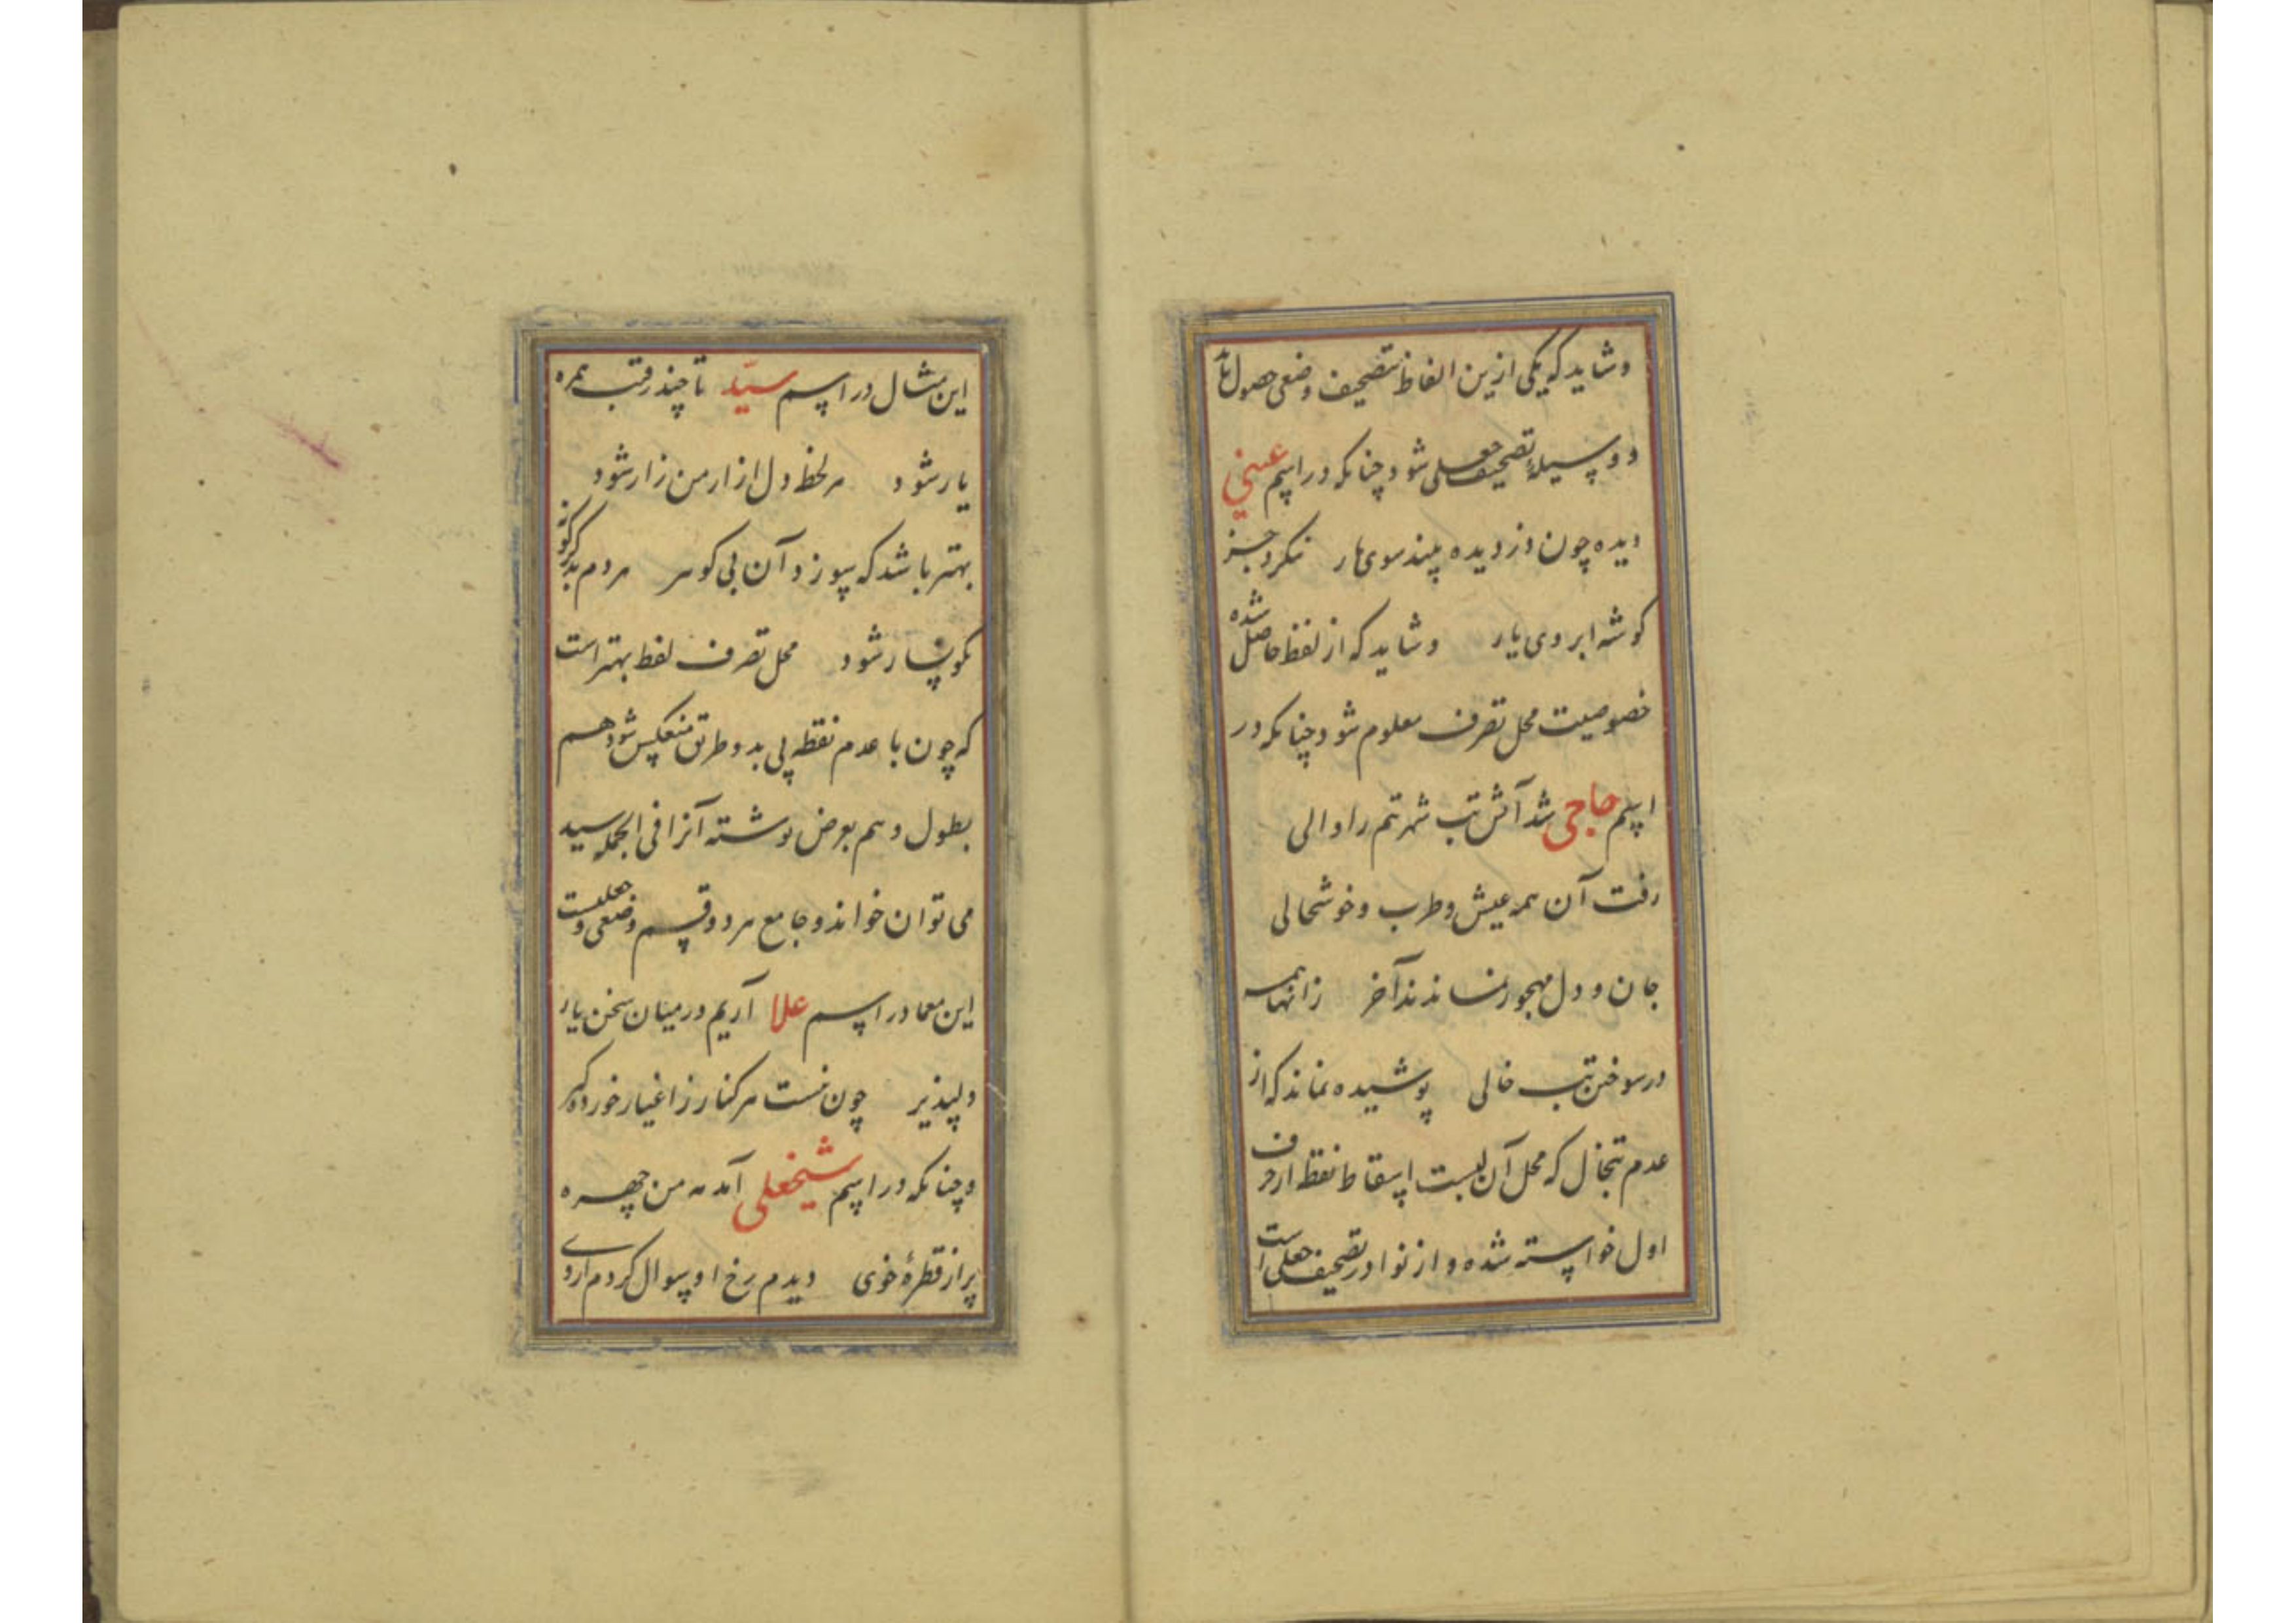 وشاید که یکی ازین الفاظ تصحیف وضعی حصول یابد
و وسیلهٔ تصحیف جعلی شود چنانکه در اسم عینی
دیده چون دزدیده بیند سوی مار ننکرد جز
کوشه ابروی یار وشاید که از لفظ حاصل شده
خصوصیت محل تصرف معلوم شود چنانکه در
اسم حاجی شد آتش تب شهر تنم را والی
رفت آن همه عیش وطرب وخوشحالی
جان و دل مهجور نماندند آخر زانها همه
در سوختن تب خالی پوشیده نماند که از
عدم تبخال که محل آن لبست اسقاط نقطه از حرف
اول خواسته شده و از نوادر تصحیف جعلی است
این مثال در اسم سیّد تا چند رقیب همره
یار شود هر لحظه دل ازار من زار شود
بهتر باشد که سوزد آن بی کوهر مردم بد کرکونه
نکونسار شود محل تصرف لفظ بهتر است
که چون با عدم نقطه پی بدو طریق منعکس شود هم
بطول و هم بعرض نوشته آنرا فی الجمله سید
می توان خواند و جامع هر دو قسم وضعی و جعلیست
این معما در اسم علا آریم در میان سخن یار
دلپذیر چون نیست هر کنار ز اغیار خورده کیر
و چنانکه در اسم شیخعلی آمد مه من چهره
پر از قطرهٔ خوی دیدم رخ او سوال کردم از وی